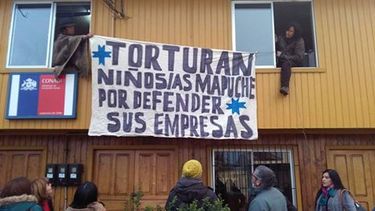 TORTURAN
NIÑOS/AS MAPUCHE
POR DEFENDER
SUS EMPRESAS
CONADI